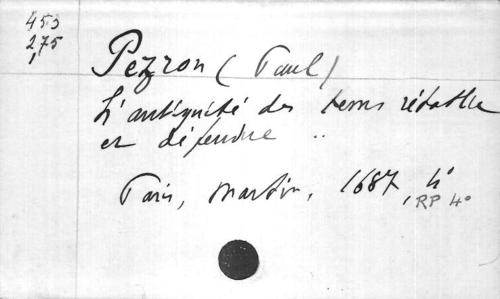 453
275
1
Pezron (Paul)
L'antiquité des tems rétablie
et défendue ..
Paris, Martin, 1687, 4°
RP 4°